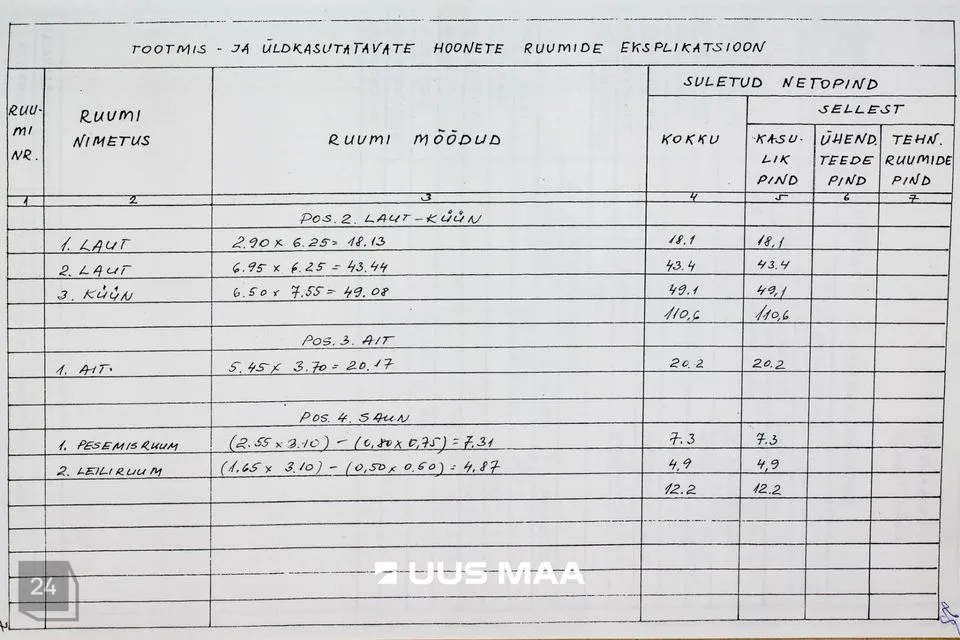 TOOTMIS - JA ÜLDKASUTATAVATE HOONETE RUUMIDE EKSPLIKATSIOON
RUU-
MI
NR.
RUUMI
NIMETUS
RUUMI MÕÕDUD
SULETUD NETOPIND
KOKKU
SELLEST
KASU-
LIK
PIND
ÜHEND.
TEEDE
PIND
TEHN.
RUUMIDE
PIND
1 2 3 4 5 6 7
POS. 2. LAUT-KÜÜN
1. LAUT 2.90 x 6.25 = 18.13 18.1 18,1
2. LAUT 6.95 x 6.25 = 43.44 43.4 43.4
3. KÜÜN 6.50 x 7.55 = 49.08 49.1 49,1
110,6 110,6
POS. 3. AIT
1. AIT. 5.45 x 3.70 = 20.17 20.2 20.2
POS. 4. SAUN
1. PESEMISRUUM (2.55 x 3.10) - (0,80 x 0,75) = 7,31 7.3 7.3
2. LEILIRUUM (1.65 x 3.10) - (0,50 x 0.50) = 4,87 4,9 4,9
12.2 12.2
24
UUS MAA